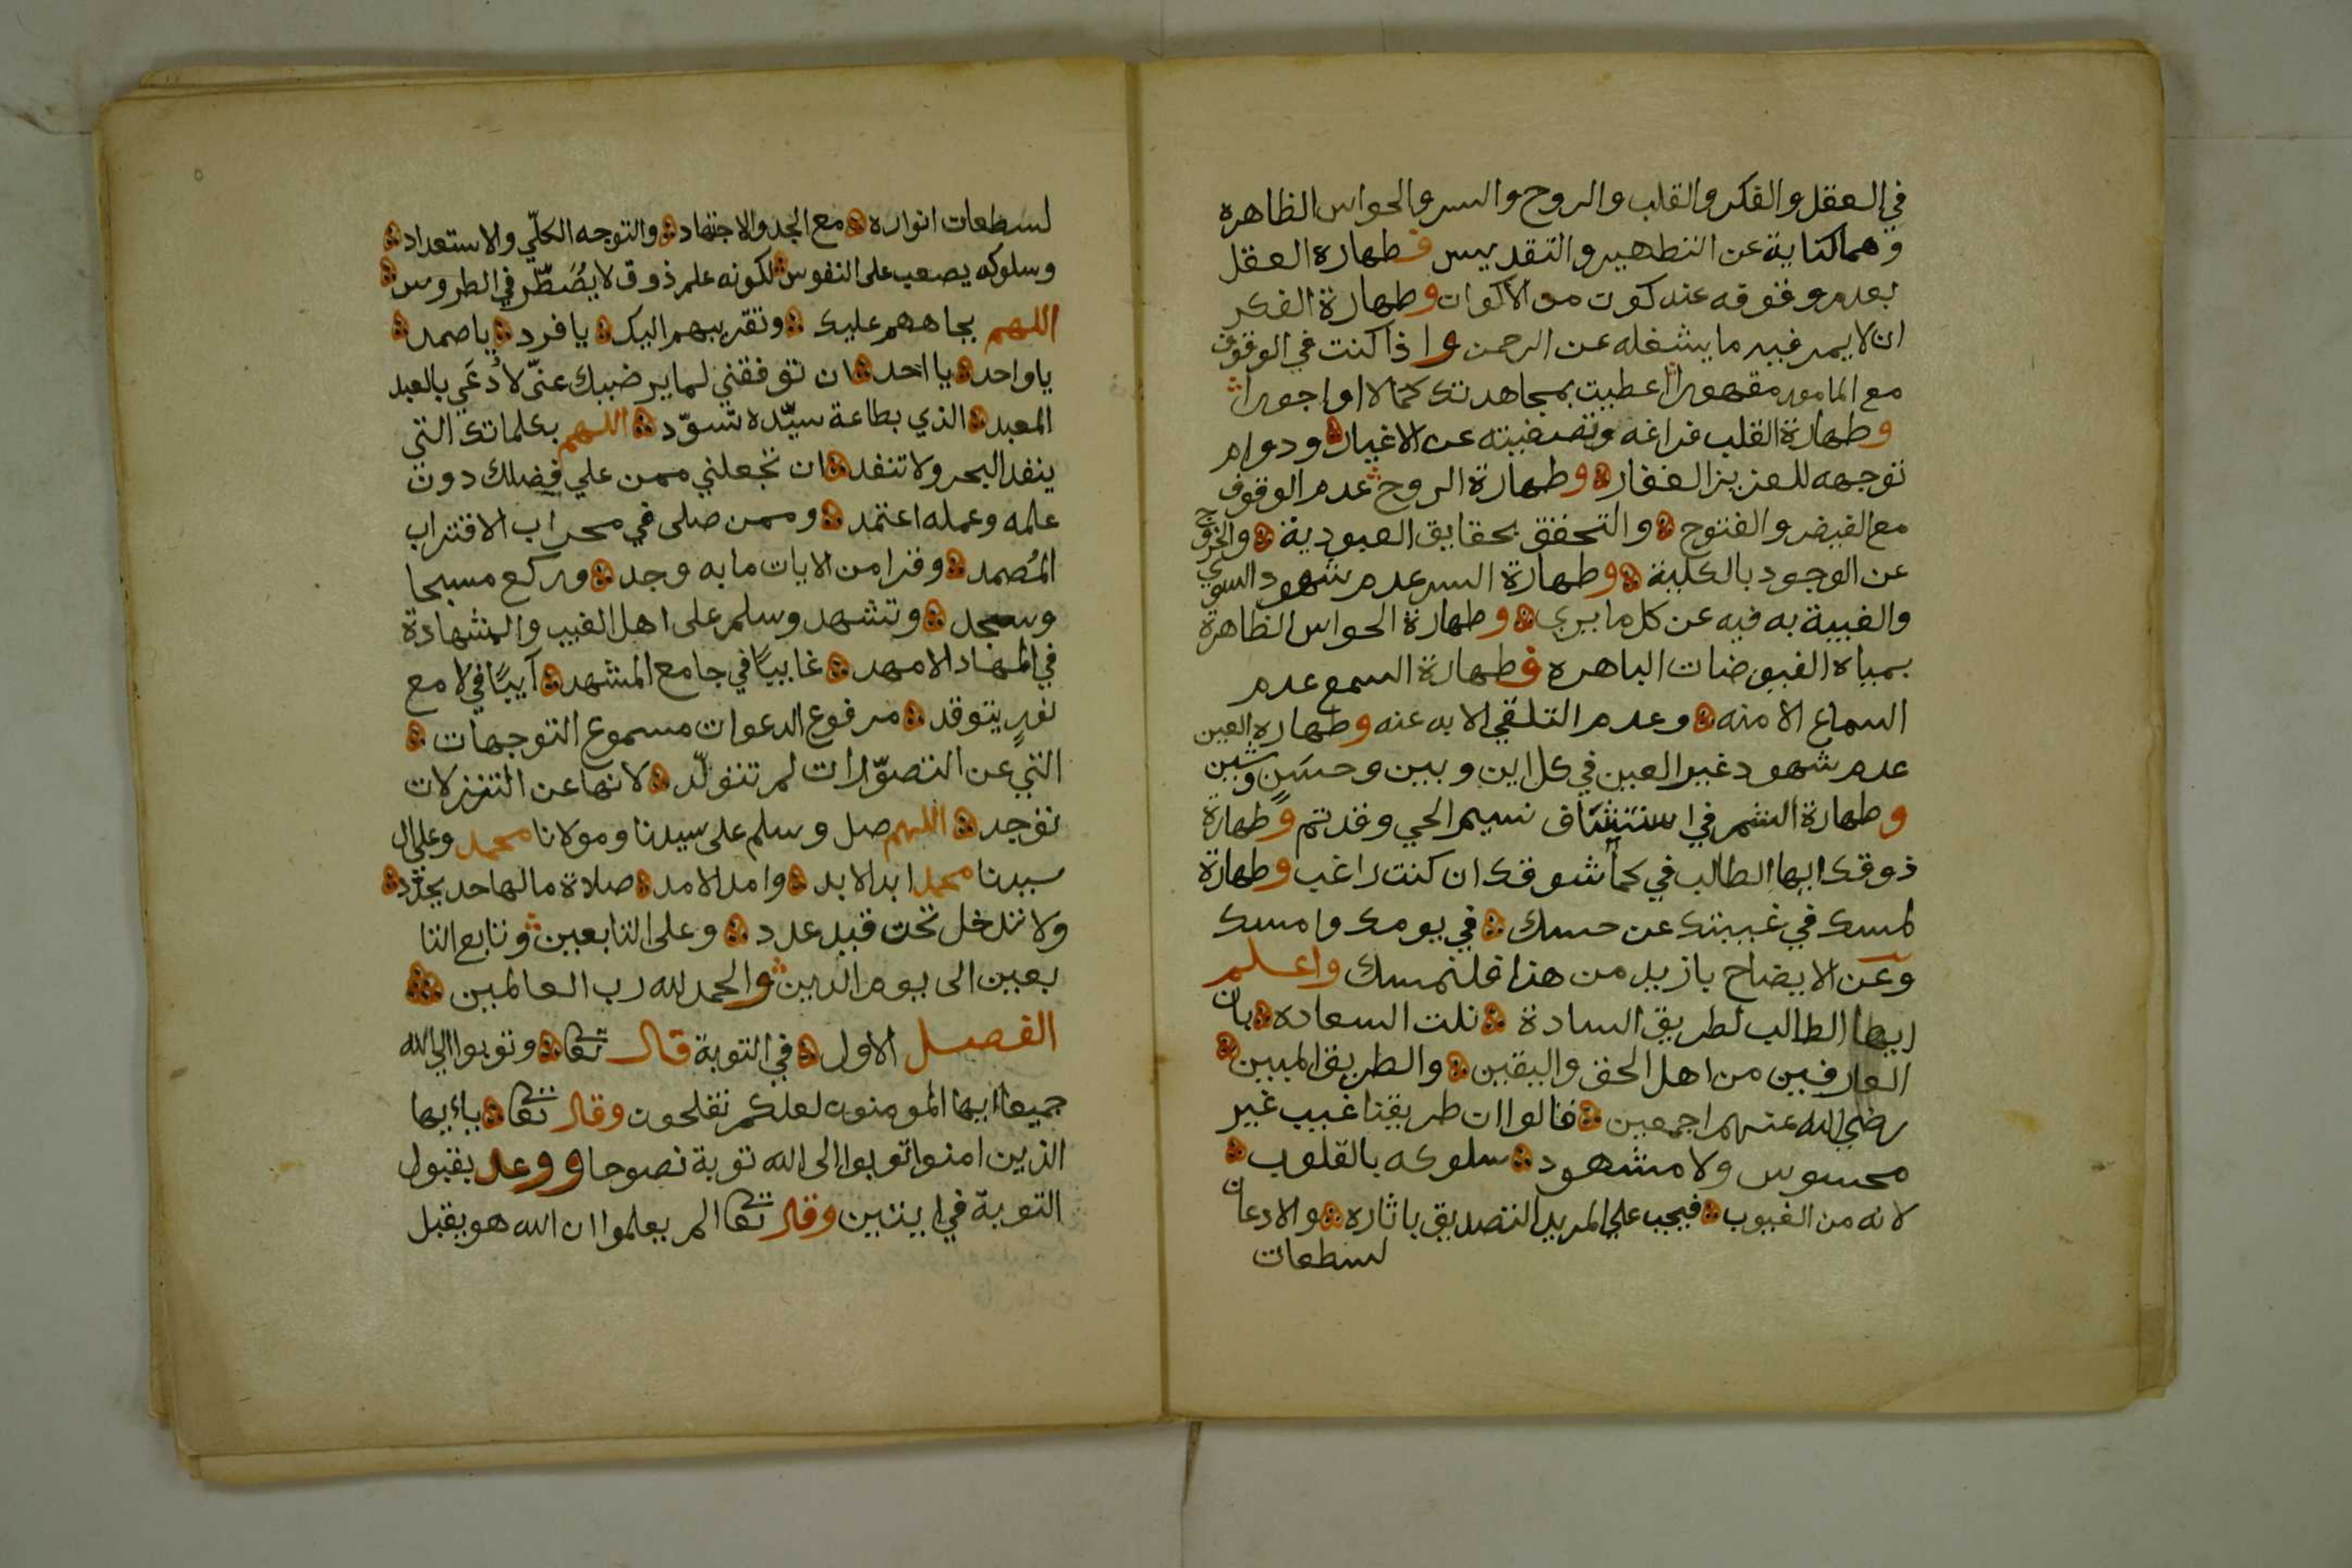 في العقل والفكر والقلب والروح والسر والحواس الظاهره
وهما كناية عن التطهير والتقديس فطهارة العقل
بعدم وقوفه عند كون من الاكوان وطهارة الفكر
ان لا يمر فيه ما يشغله عن الرحمن واذا كنت في الوقوف
مع المامور مقهورا اعطيت بمجاهدتك كمالا واجورا
وطهارة القلب فراغه وتصفيته عن الاغيار ودوام
توجهه للعزيز الغفار وطهارة الروح عدم الوقوف
مع الفيض والفتوح والتحقق بحقايق العبودية والخروج
عن الوجود بالكلية وطهارة السر عدم شهود السوي
والغيبة به فيه عن كل ما يري وطهارة الحواس الظاهرة
بمياه الفيوضات الباهره فطهارة السمع عدم
السماع الا منه وعدم التلقي الا به عنه وطهاره العين
عدم شهود غير العين في كل اين وبين وحسَنٍ وشين
وطهارة الشم في استنشاق نسيم الحي وقد تم وطهارة
ذوقك ايها الطالب في كمأ شوقك ان كنت راغب وطهارة
لمسك في غيبتك عن حسك في يومك وامسك
وعن الايضاح بازيد من هذا فلنمسك واعلم
ايها الطالب لطريق السادة نلت السعاده بان
العارفين من اهل الحق واليقين والطريق المبين
رضي الله عنهم اجمعين قالوا ان طريقنا غيب غير
محسوس ولا مشهود سلوكه بالقلوب
لانه من الغيوب فيجب علي المريد التصديق باثاره والاذعان
لسطعات
لسطعات انواره مع الجد والاجتهاد والتوجه الكلّي والاستعداد
وسلوكه يصعب على النفوس لكونه علم ذوق لا يُسَطّر في الطروس
اللهم بجاههم عليك وتقريبهم اليك يا فرد يا صمد
يا واحد يا احد ان توفقني لما يرضيك عنّي لأدعَي بالعبد
المعبد الذي بطاعة سيّده تسوّد اللهم بكلماتك التي
ينفد البحر ولا تنفد ان تجعلني ممن علي فضلك دون
علمه وعمله اعتمد وممن صلى في محراب الاقتراب
المُصمد وقرا من الايات ما به وجد وركع مسبحا
وسجد وتشهد وسلم على اهل الغيب والشهادة
في المهاد الامهد غايبًا في جامع المشهد آيبًا في لامع
نورٍ يتوقد مرفوع الدعوات مسموع التوجهات
التي عن التصوّرات لم تتولّد لانها عن التنزلات
توجد اللهم صل وسلم على سيدنا ومولانا محمد وعلي ال
سيدنا محمد ابد الابد وامد الامد صلاة ما لها حد يحدد
ولا تدخل تحت قيد عدد وعلى التابعين وتابع التا
بعين الى يوم الدين والحمد لله رب العالمين
الفصل الاول في التوبة قال تعا وتوبوا الي الله
جميعا ايها المومنون لعلكم تفلحون وقال تعا ياءيها
الذين امنوا توبوا الى الله توبة نصوحا ووعد بقبول
التوبة في ايتين وقال تعا الم يعلموا ان الله هو يقبل